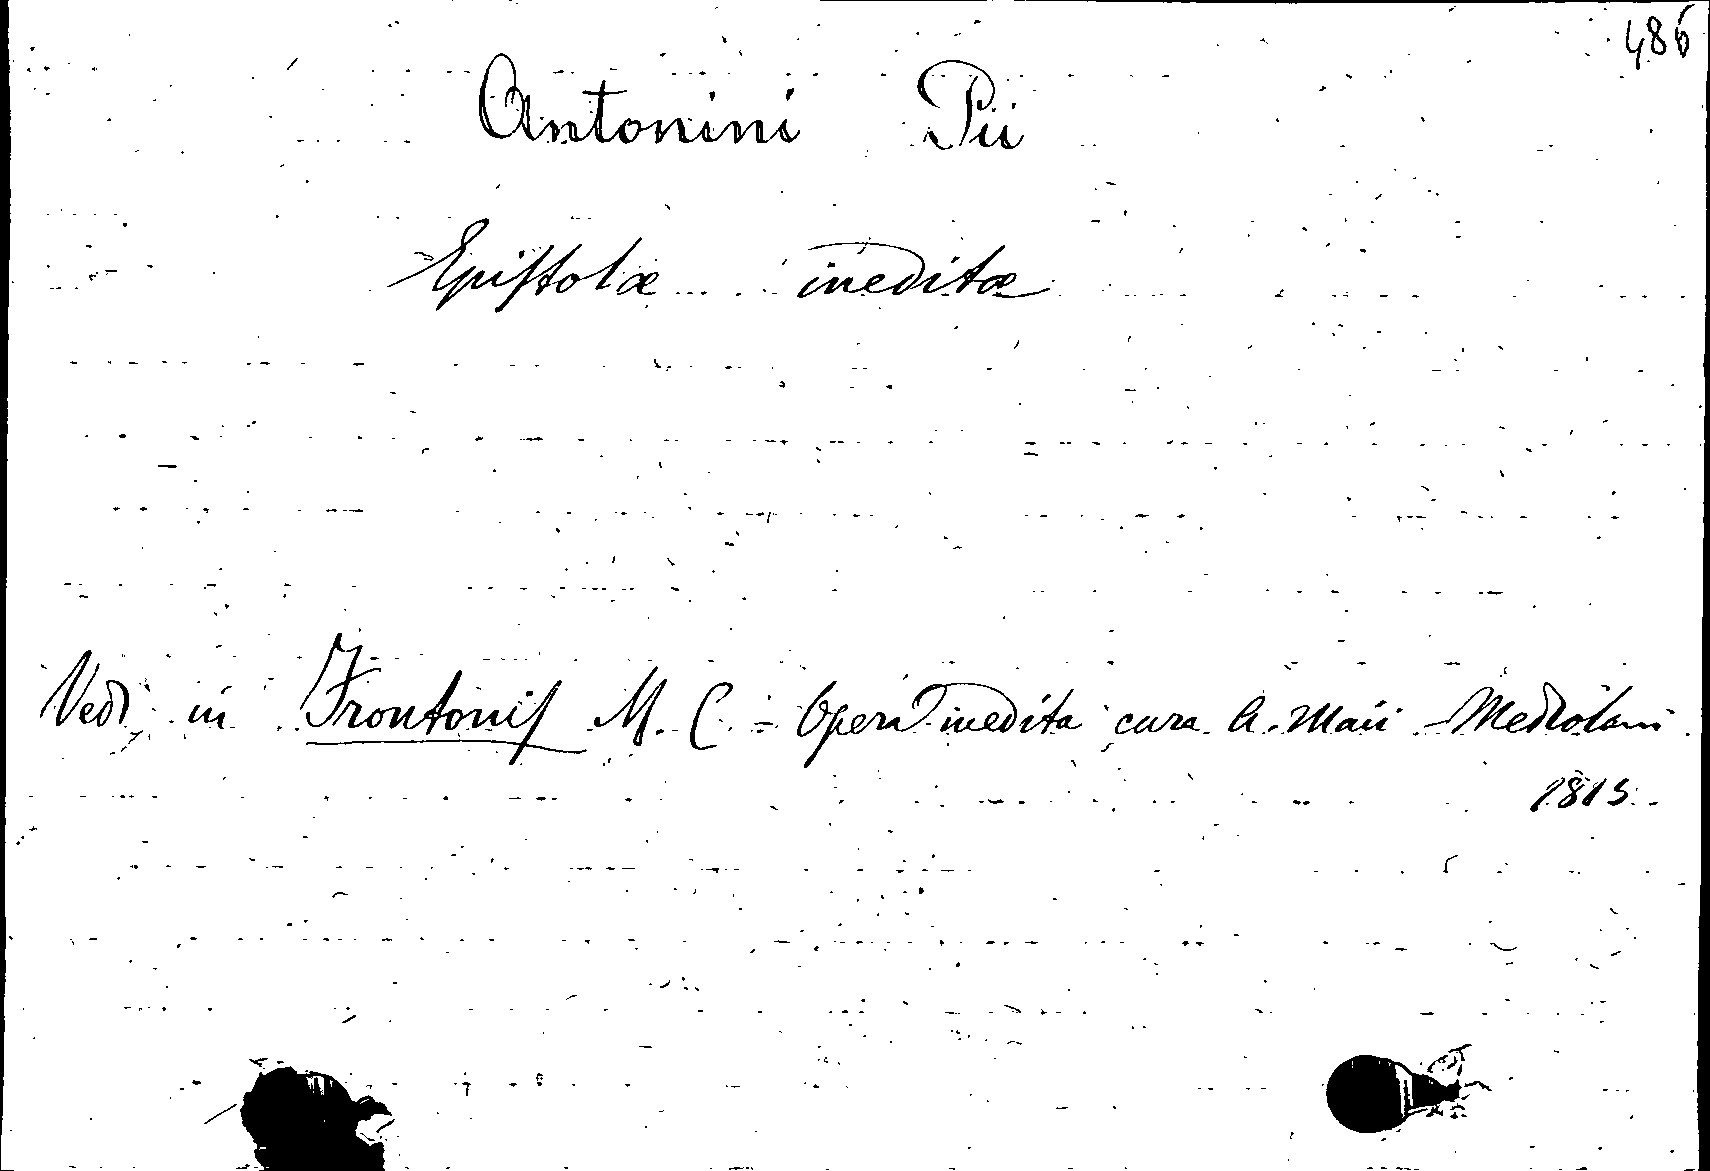 486
Antonini Pii
Epistolæ ineditæ
Vedi in Frontonis M. C. = Opera inedita cura A. Maii - Mediolani
1815.